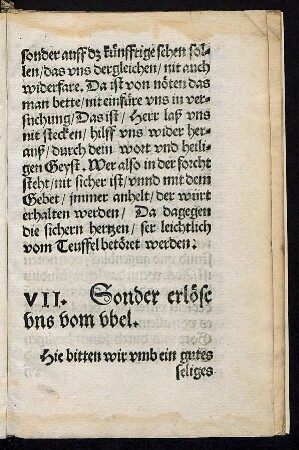 sonder auff dz künfftige sehen sol-
len/das vns dergleichen/nit auch
widerfare. Da ist von nöten das
man bette/nit einfüre vns in ver-
suchung/Das ist/Herr laß vns
nit stecken/hilff vns wider her-
auß/durch dein wort vnd heili-
gen Geyst. Wer also in der forcht
steht/nit sicher ist/vnnd mit dem
Gebet/jmmer anhelt/der würt
erhalten werden/Da dagegen
die sichern hertzen/ser leichtlich
vom Teuffel betöret werden.
VII. Sonder erlöse
vns vom vbel.
Hie bitten wir vmb ein gutes
seliges